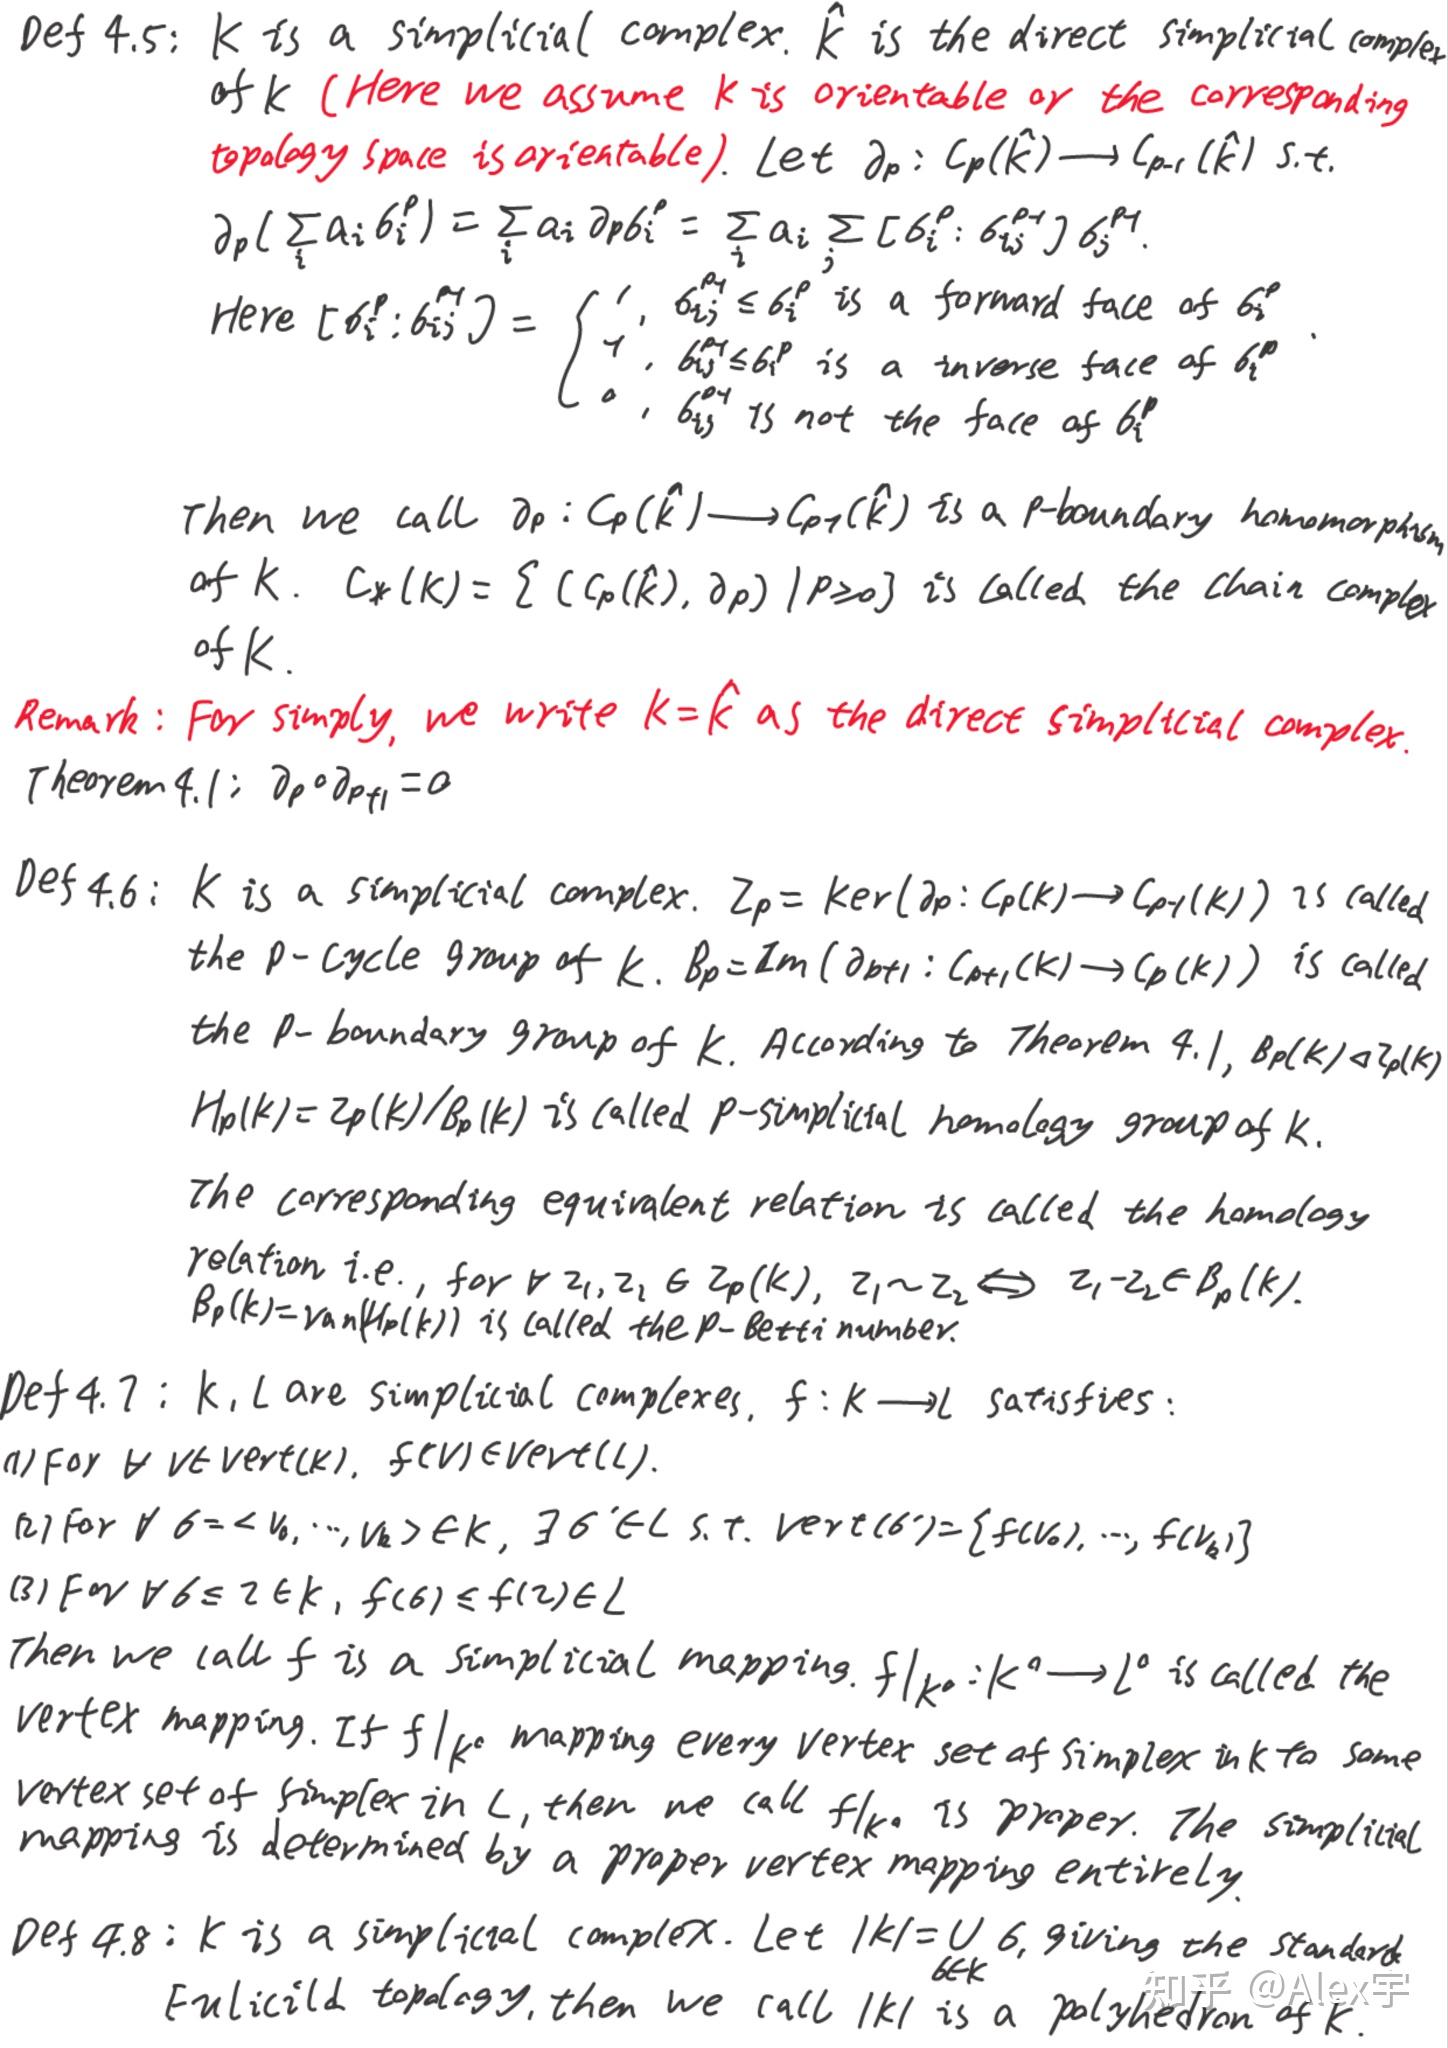 Def 4.5: K is a simplicial complex. K̂ is the direct simplicial complex
of K (Here we assume K is orientable or the corresponding
topology space is orientable). Let ∂p : Cp(K̂) ⟶ Cp-1(K̂) s.t.
∂p(∑i ai σi^p) = ∑i ai ∂pσi^p = ∑i ai ∑j [σi^p : σij^p-1] σj^p-1.
Here [σi^p : σij^p-1] = { 1, σij^p-1 ≤ σi^p is a forward face of σi^p
-1, σij^p-1 ≤ σi^p is a inverse face of σi^p .
0, σij^p-1 is not the face of σi^p
Then we call ∂p : Cp(K̂) ⟶ Cp-1(K̂) is a p-boundary homomorphism
of K. C*(K) = { (Cp(K̂), ∂p) | p≥0} is called the chain complex
of K.
Remark: For simply, we write K = K̂ as the direct simplicial complex.
Theorem 4.1: ∂p∘∂p+1 = 0
Def 4.6: K is a simplicial complex. Zp = Ker(∂p : Cp(K) ⟶ Cp-1(K)) is called
the p-cycle group of K. Bp = Im(∂p+1 : Cp+1(K) ⟶ Cp(K)) is called
the p-boundary group of K. According to Theorem 4.1, Bp(K) ◁ Zp(K)
Hp(K) = Zp(K)/Bp(K) is called p-simplicial homology group of K.
The corresponding equivalent relation is called the homology
relation i.e., for ∀ z1, z2 ∈ Zp(K), z1 ~ z2 ⟺ z1-z2 ∈ Bp(K).
Bp(K) = ran(Hp(K)) is called the p-Betti number.
Def 4.7: K, L are simplicial complexes, f : K ⟶ L satisfies:
(1) For ∀ v ∈ Vert(K), f(v) ∈ Vert(L).
(2) For ∀ σ = <v0, ..., vk> ∈ K, ∃ σ' ∈ L s.t. Vert(σ') = {f(v0), ..., f(vk)}
(3) For ∀ σ ≤ τ ∈ K, f(σ) ≤ f(τ) ∈ L
Then we call f is a simplicial mapping. f|K⁰ : K⁰ ⟶ L⁰ is called the
vertex mapping. If f|K⁰ mapping every vertex set of simplex in K to some
vertex set of simplex in L, then we call f|K⁰ is proper. The simplicial
mapping is determined by a proper vertex mapping entirely.
Def 4.8: K is a simplicial complex. Let |K| = ∪σ∈K σ, giving the standard
Eulicild topology, then we call |K| is a polyhedron of K.
知乎 @Alex宇